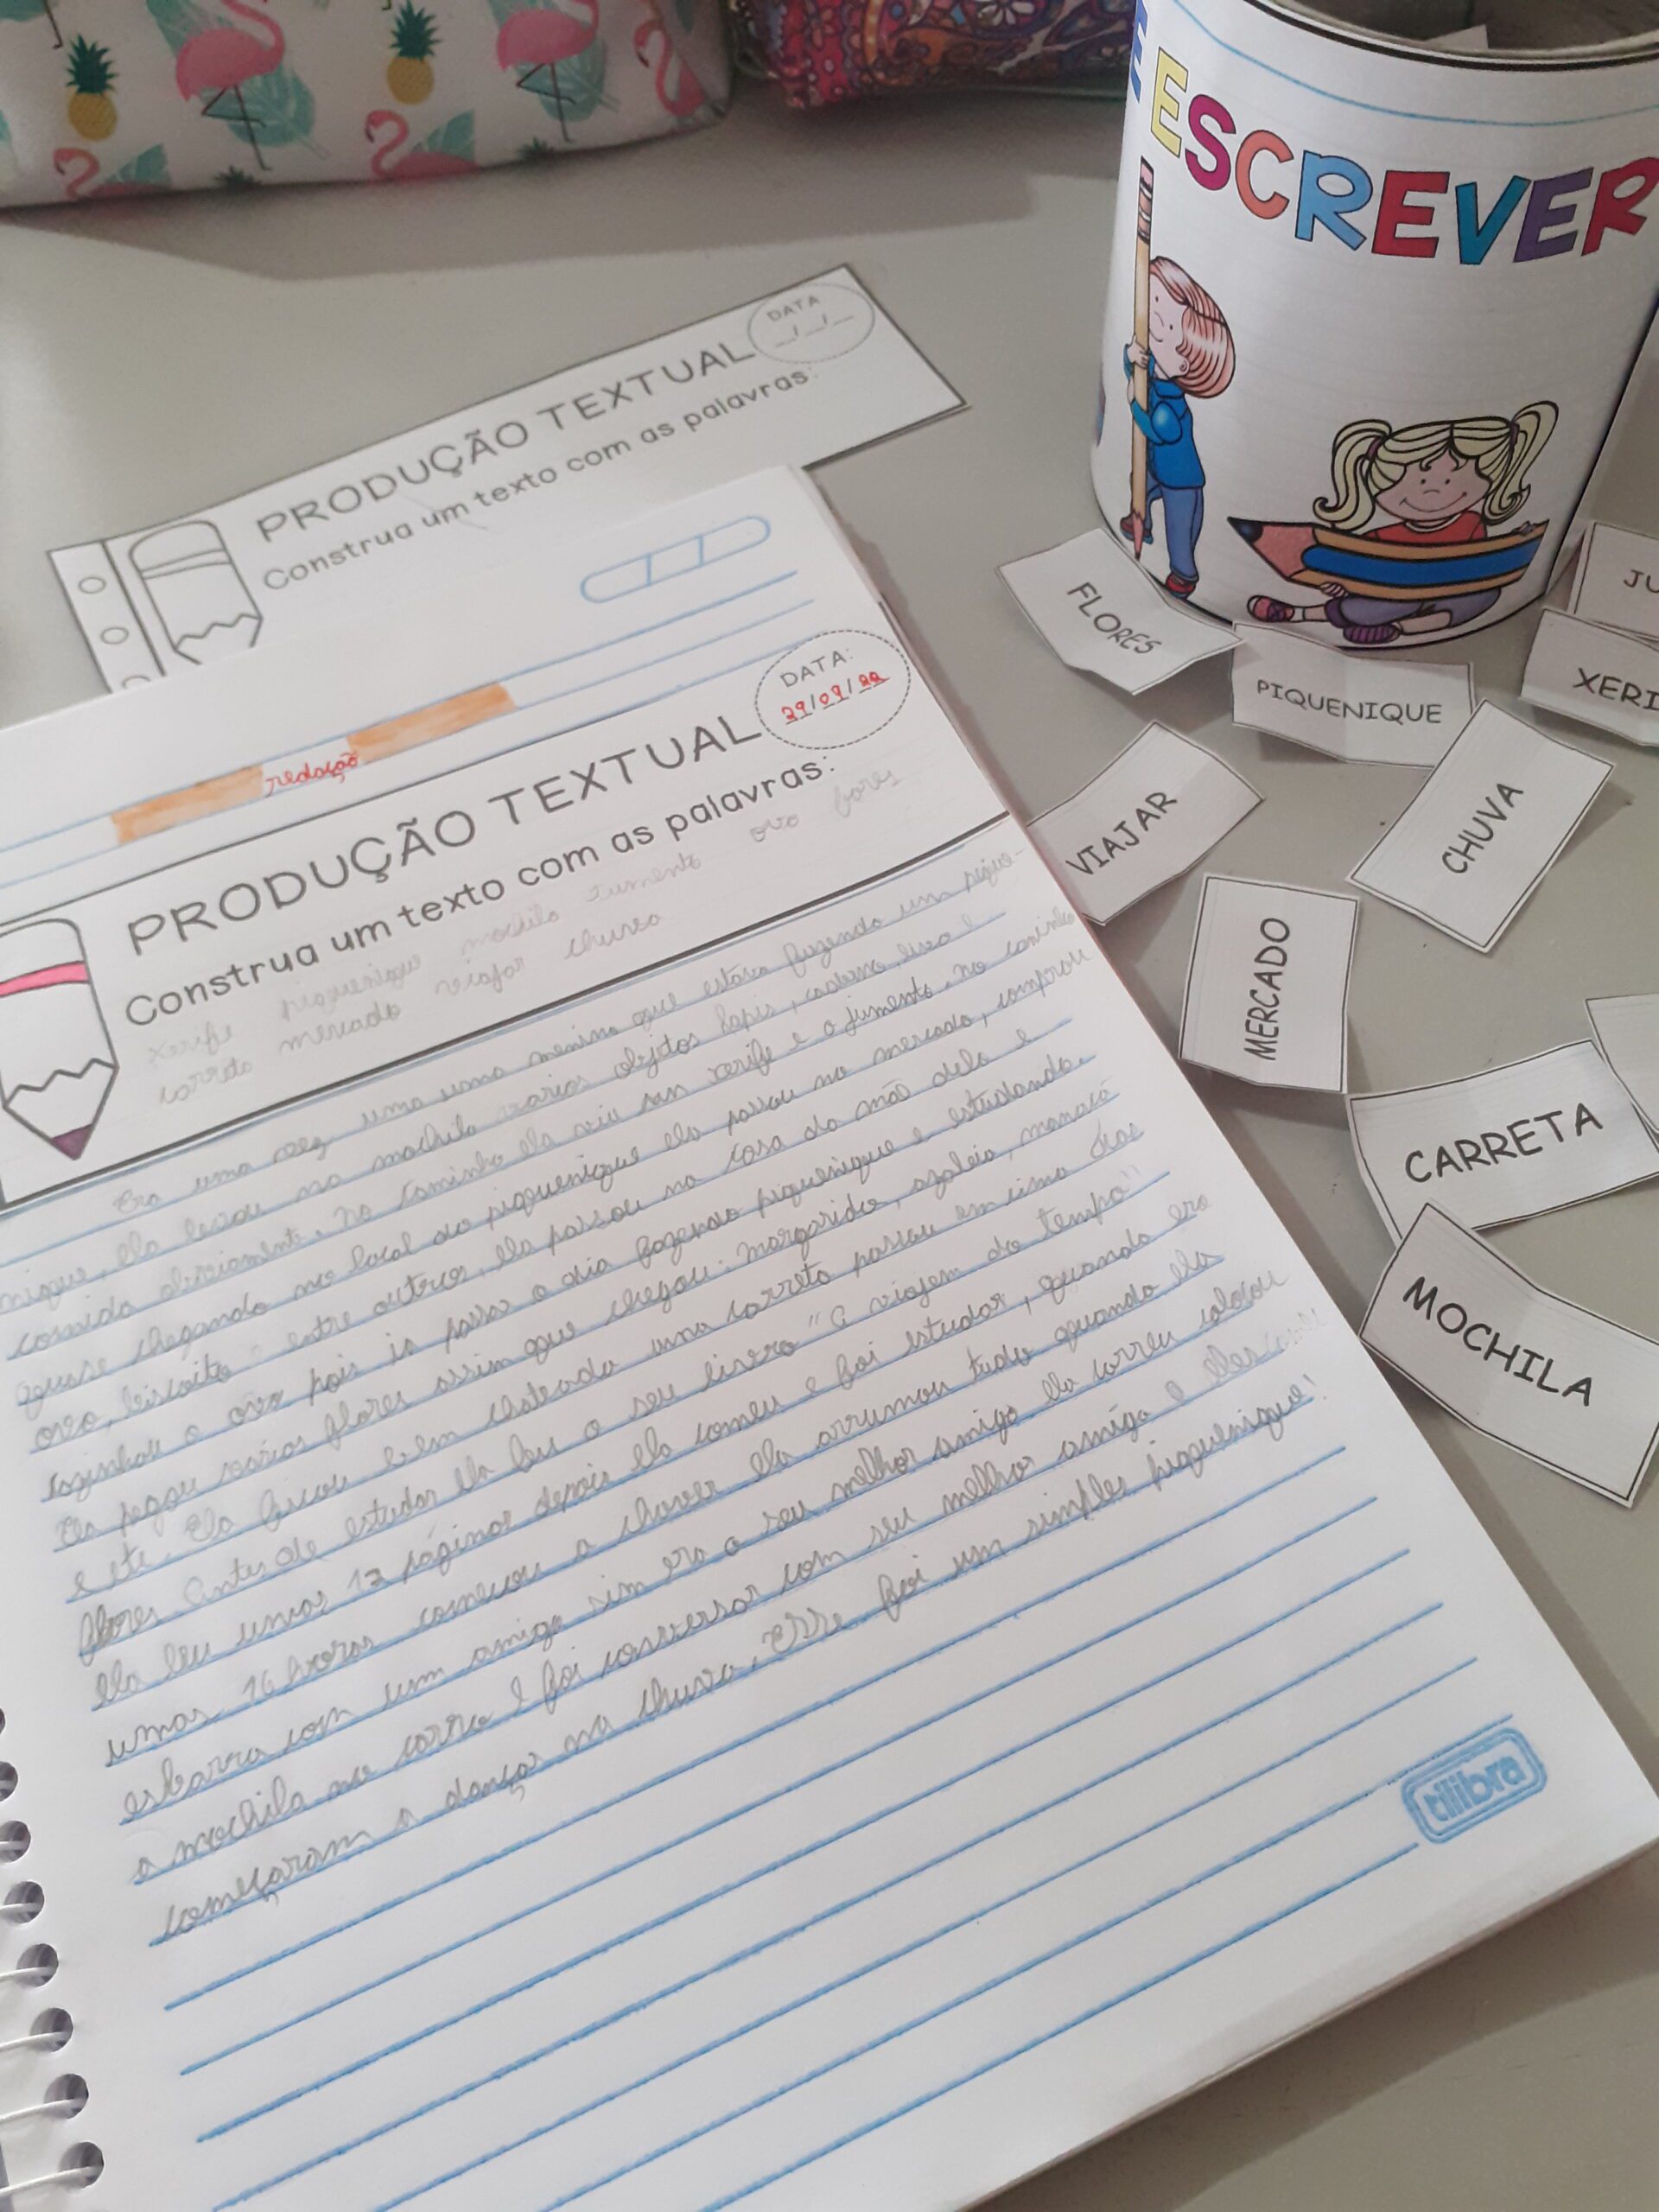 E
ESCREVER
DATA
PRODUÇÃO TEXTUAL
Construa um texto com as palavras:
FLORES
JU
PIQUENIQUE
XERI
VIAJAR
CHUVA
MERCADO
CARRETA
MOCHILA
redação
DATA:
29/09/22
PRODUÇÃO TEXTUAL
Construa um texto com as palavras:
xerife piquenique mochila jumento ovo flores
carreta mercado viajar chuva
Era uma vez uma uma menina que estava fazendo um pique-
nique, ela levou na mochila varios objetos lapis, caderno, livro e
comida obviamente. No caminho ela viu um xerife e o jumento. No caminho
quase chegando no local do piquenique ela passou no mercado, comprou
ovo, biscoito entre outros, ela passou na casa da mãe dela e
cozinhou o ovo pois ia passa o dia fazendo piquenique e estudando.
Ela pegou várias flores assim que chegou: margarida, azaleia, manacá
e etc. Ela ficou bem chateada uma carreta passou em cima das
flores. Antes de estudar ela leu o seu livro "a viajem do tempo"
ela leu umas 17 páginas depois ela comeu e foi estudar, quando era
umas 16 horas começou a chover ela arrumou tudo quando ela
esbarra com um amigo sim era o seu melhor amigo. ela correu colocou
a mochila no carro e foi conversar com seu melhor amigo e eles
começaram a dança na chuva. Esse foi um simples piquenique!
tilibra